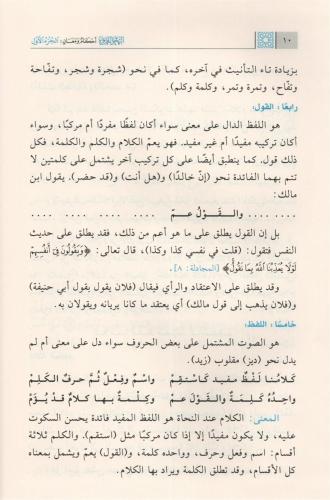 ١٠
النحو العربي أحكام ومعان: الجزء الأول
بزيادة تاء التأنيث في آخره، كما في نحو (شجرة وشجر، وتفّاحة
وتفّاح، وتمرة وتمر، وكلمة وكلم).
رابعًا: القول:
هو اللفظ الدال على معنى سواء أكان لفظًا مفردًا أم مركبًا، وسواء
أكان تركيبه مفيدًا أم غير مفيد. فهو يعمّ الكلام والكلم والكلمة، فكل
ذلك قول. كما ينطبق أيضًا على كل تركيب آخر يشتمل على كلمتين لا
تتم بهما الفائدة نحو (إنّ خالدًا) و(هل أنت) و(قد حضر). يقول ابن
مالك:
.... .... .... .... والـقـوْلُ عـمّ .... .... .... ....
بل إن القول يطلق على ما هو أعم من ذلك، فقد يطلق على حديث
النفس فتقول: (قلت في نفسي كذا وكذا)، قال تعالى: ﴿وَيَقُولُونَ فِي أَنفُسِهِمْ
لَوْلَا يُعَذِّبُنَا اللَّهُ بِمَا نَقُولُ﴾ [المجادلة: ٨].
وقد يطلق على الاعتقاد والرأي فيقال (فلان يقول بقول أبي حنيفة)
و(فلان يذهب إلى قول مالك) أي يعتقد ما كانا يريانه ويقولان به.
خامسًا: اللفظ:
هو الصوت المشتمل على بعض الحروف سواء دل على معنى أم لم
يدل نحو (ديز) مقلوب (زيد).
كلامُنا لفْظٌ مفيد كاستقِمْ واسمٌ وفِعْلٌ ثُمَّ حرفٌ الكَلِمْ
واحِدُهُ كَلِمةٌ والقَوْلُ عمّ وكِلْمةٌ بهـا كلامٌ قَدْ يُؤَمّ
المعنى: الكلام عند النحاة هو اللفظ المفيد فائدة يحسن السكوت
عليه، ولا يكون مفيدًا إلا إذا كان مركبًا مثل (استقم). والكلم ثلاثة
أقسام: اسم وفعل وحرف، وواحده كلمة، و(القول) يعمّ ويشمل بمعناه
كل الأقسام، وقد تطلق الكلمة ويراد بها الكلام.